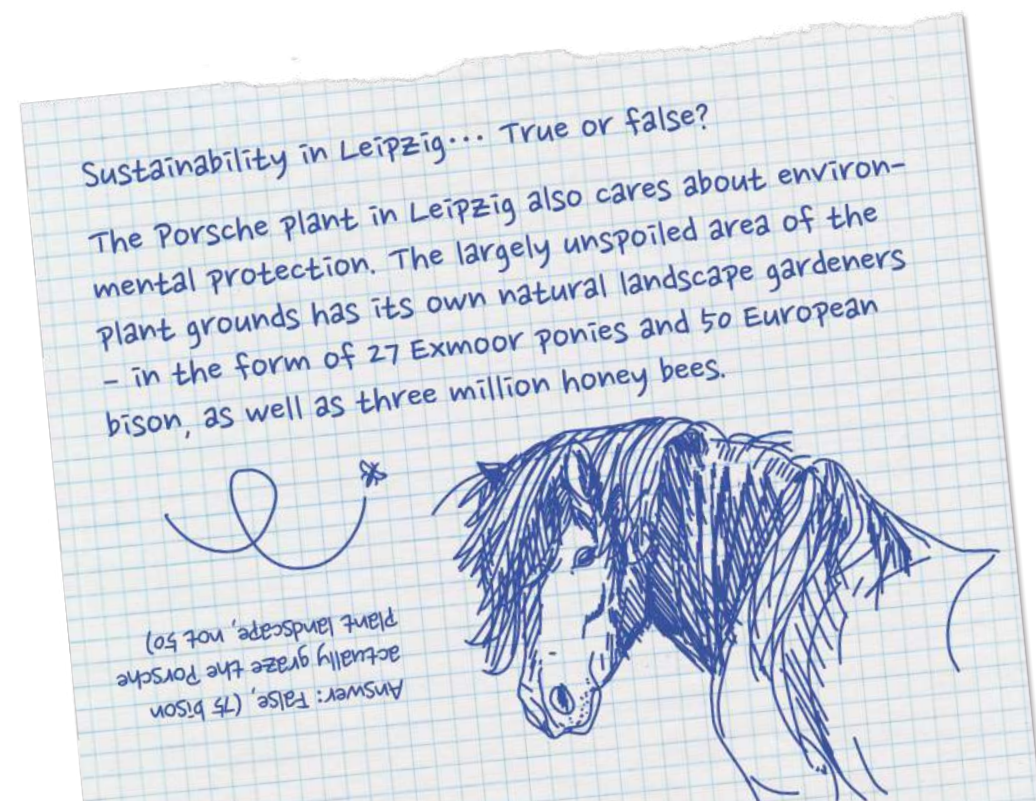 Sustainability in Leipzig... True or false?
The Porsche plant in Leipzig also cares about environ-
mental protection. The largely unspoiled area of the
plant grounds has its own natural landscape gardeners
– in the form of 27 Exmoor ponies and 50 European
bison, as well as three million honey bees.
Answer: False, (75 bison
actually graze the Porsche
plant landscape, not 50)